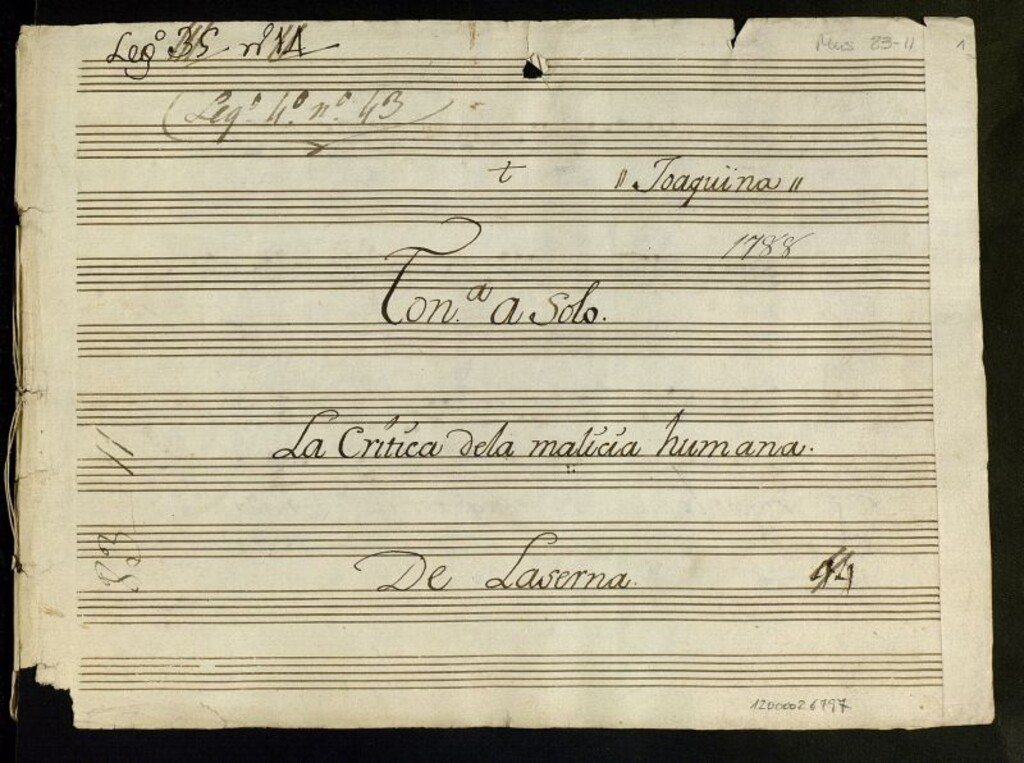 Leg.º nº
Mus 83-11
1
(Leg.º 4.º n.º 43
t
" Joaquina "
1788
Ton.ª a Solo.
La Crítica dela malicia humana.
11
De Laserna.
12000026797